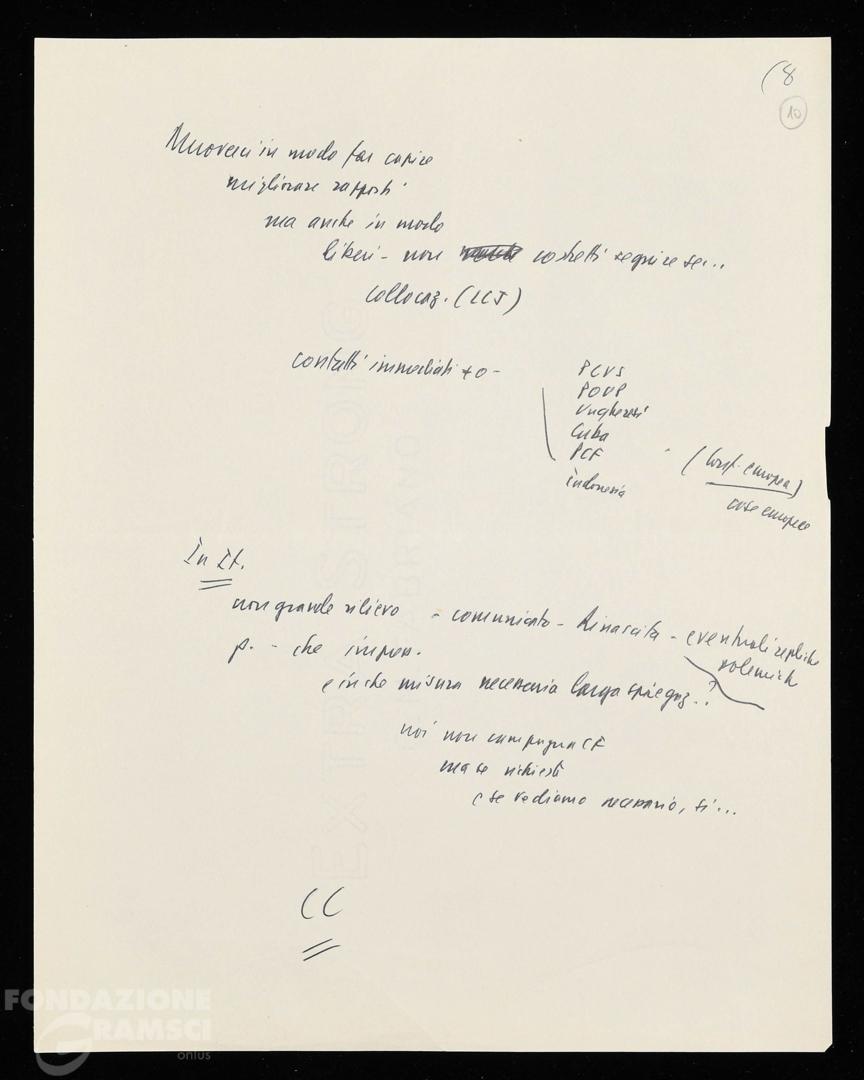 (8
10
Muoverci in modo far capire
migliorare rapporti
ma anche in modo
liberi - non costretti seguire se...
collocaz. (LCJ)
contatti immediati + o -
PCUS
POUP
Ungheresi
Cuba
PCF
(Conf. europea)
Indonesia
cose europee
In It.
non grande rilievo - comunicato - Rinascita - eventuali repliche
polemich
p. - che impon.
e in che misura necessaria larga spiegaz..?
noi non campagna CF
ma se richiesti
e se vediamo necessario, si...
CC
FONDAZIONE
GRAMSCI
onlus